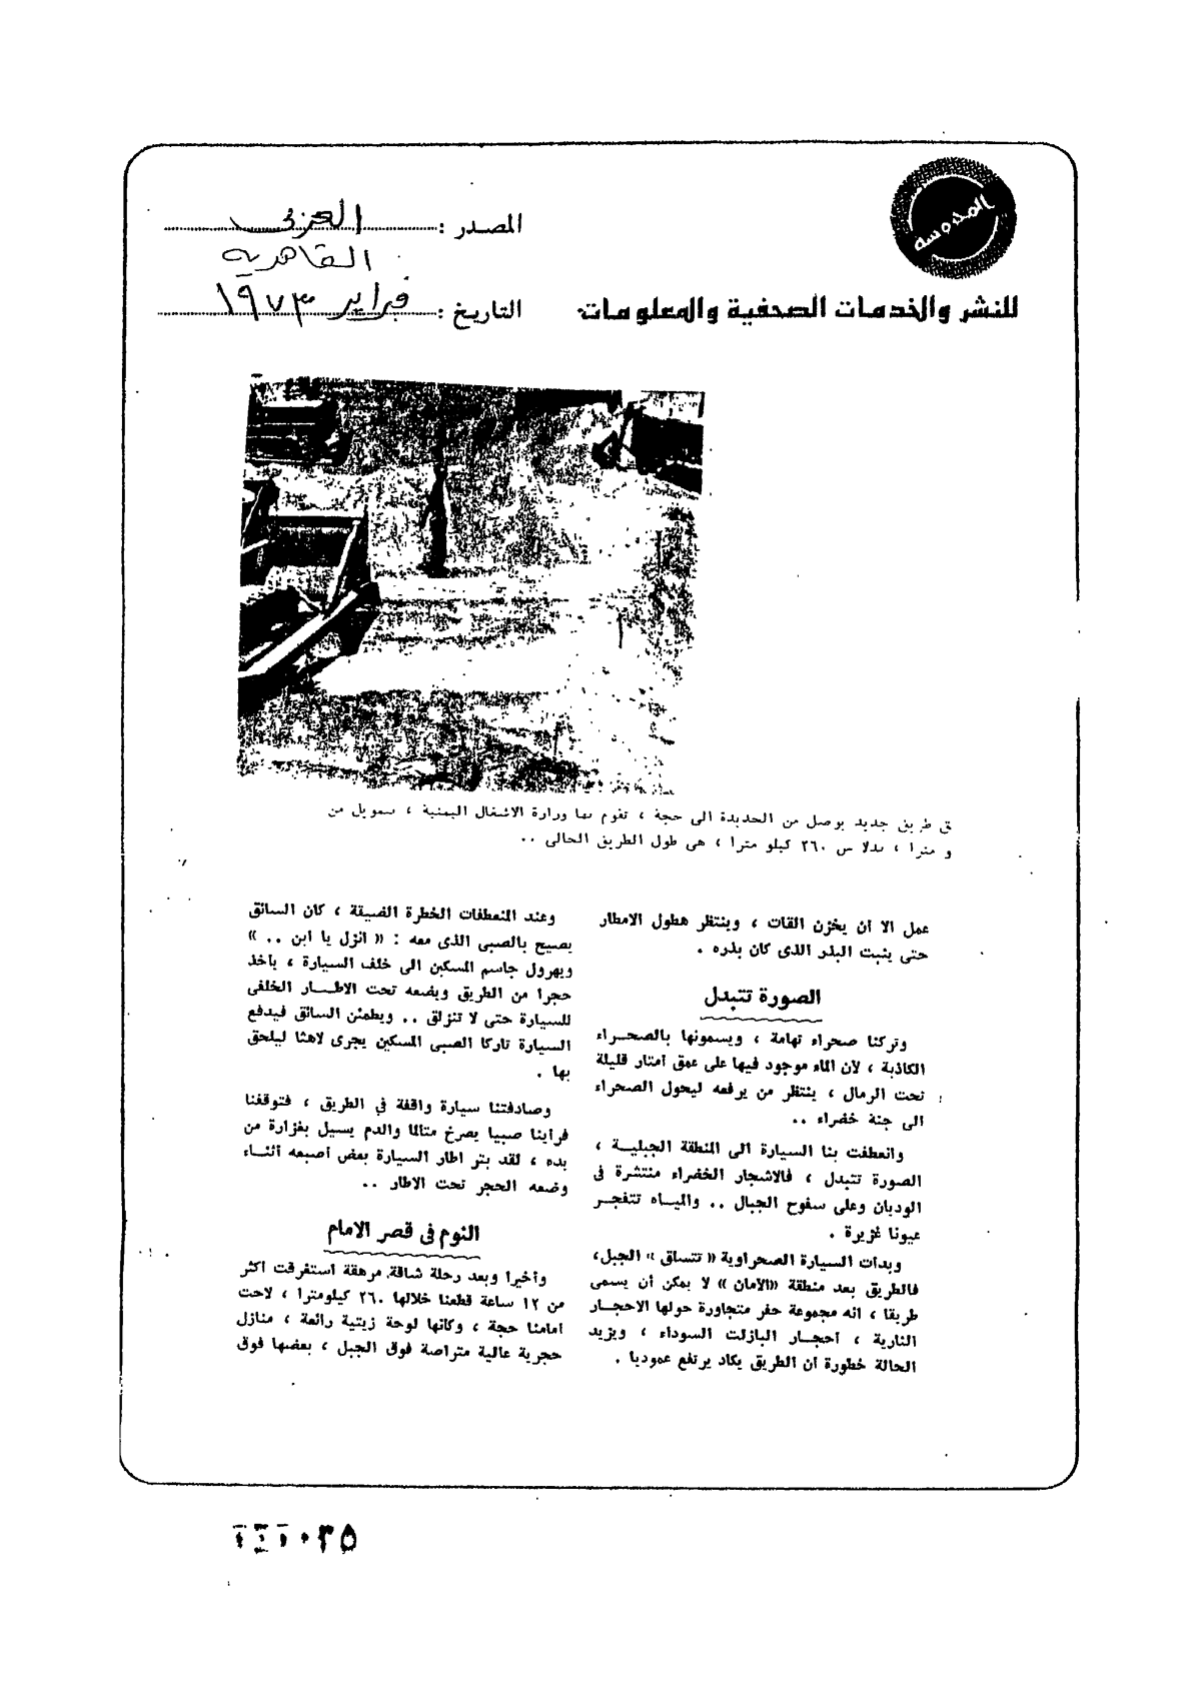 المحروسة
للنشر والخدمات الصحفية والمعلومات
المصدر : العربى
القاهرية
التاريخ : فبراير ١٩٧٣
ق طريق جديد يوصل من الحديدة الى حجة ، تقوم بها وزارة الاشغال اليمنية ، بتمويل من
و مترا ، بدلا من ٢٦٠ كيلو مترا ، هى طول الطريق الحالى ..
عمل الا ان يخزن القات ، وينتظر هطول الامطار
حتى ينبت البذر الذى كان بذره .
الصورة تتبدل
وتركنا صحراء تهامة ، ويسمونها بالصحراء
الكاذبة ، لان الماء موجود فيها على عمق امتار قليلة
تحت الرمال ، ينتظر من يرفعه ليحول الصحراء
الى جنة خضراء ..
وانعطفت بنا السيارة الى المنطقة الجبلية ،
الصورة تتبدل ، فالاشجار الخضراء منتشرة فى
الوديان وعلى سفوح الجبال .. والمياه تتفجر
عيونا غزيرة .
وبدأت السيارة الصحراوية « تتساق » الجبل،
فالطريق بعد منطقة «الامان» لا يمكن أن يسمى
طريقا ، انه مجموعة حفر متجاورة حولها الاحجار
النارية ، احجار البازلت السوداء ، ويزيد
الحالة خطورة ان الطريق يكاد يرتفع عموديا .
وعند المنعطفات الخطرة الضيقة ، كان السائق
يصيح بالصبى الذى معه : « انزل يا ابن .. »
ويهرول جاسم المسكين الى خلف السيارة ، يأخذ
حجرا من الطريق ويضعه تحت الاطار الخلفى
للسيارة حتى لا تنزلق .. ويطمئن السائق فيدفع
السيارة تاركا الصبى المسكين يجرى لاهثا ليلحق
بها .
وصادفتنا سيارة واقفة في الطريق ، فتوقفنا
فرأينا صبيا يصرخ متألما والدم يسيل بغزارة من
يده ، لقد بتر اطار السيارة بعض أصبعه أثناء
وضعه الحجر تحت الاطار ..
النوم فى قصر الامام
وأخيرا وبعد رحلة شاقة مرهقة استغرقت اكثر
من ١٢ ساعة قطعنا خلالها ٢٦٠ كيلومترا ، لاحت
امامنا حجة ، وكأنها لوحة زيتية رائعة ، منازل
حجرية عالية متراصة فوق الجبل ، بعضها فوق